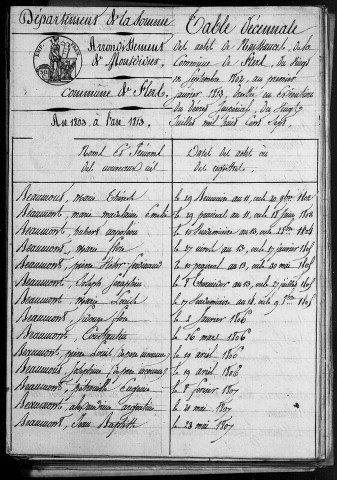 Département de la Somme
Arrondissement
de Montdidier
Commune de
An 1803 à l'an 1813
Table Décennale
des actes de Naissances, de la
Commune de du vingt
Septembre 1802, au premier
janvier 1813, dressée en Exécution
du décret Impérial du Vingt
Juillet mil huit Cent Sept
Noms Et Prénoms
des nouveaux nés
Dates des actes ou
des registres
Beaumont, marie Thérèse le 29 Brumaire an 11, ou le 20 9bre 1802
Beaumont, marie magdelaine le 29 prairial an 11, ou le 18 juin 1803
Beaumont, hubert le 10 Vendémiaire an 13, ou le 1804
Beaumont, marie le 27 nivôse an 13, ou le 17 janvier 1805
Beaumont, pierre le 10 prairial an 13, ou le 30 mai 1805
Beaumont, Joseph Séraphin le 8 Thermidor an 13, ou le 27 juillet 1805
Beaumont, marie Louise le 17 Vendémiaire an 14, ou le 9 8bre 1805
Beaumont, le 2 janvier 1806
Beaumont, Constantin le 16 mars 1806
Beaumont, pierre Louis le 19 avril 1806
Beaumont, Joséphine le 19 avril 1806
Beaumont, Eugénie le 8 février 1807
Beaumont, alexandrine le 20 mai 1807
Beaumont, Jean Baptiste le 23 mai 1807